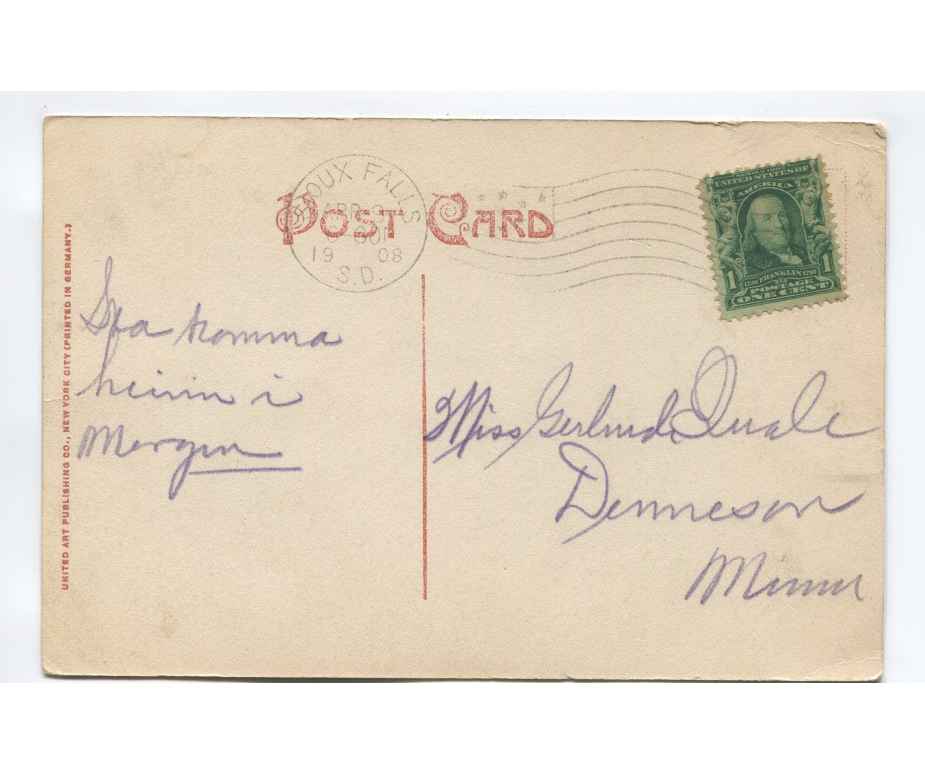 POST CARD
SIOUX FALLS
APR
19 08
S.D.
UNITED STATES OF
AMERICA
FRANKLIN
POSTAGE
1 ONE CENT 1
UNITED ART PUBLISHING CO., NEW YORK CITY (PRINTED IN GERMANY.)
Ska komma
heim i
Morgen
Miss Gertrud Quale
Denneson
Minn